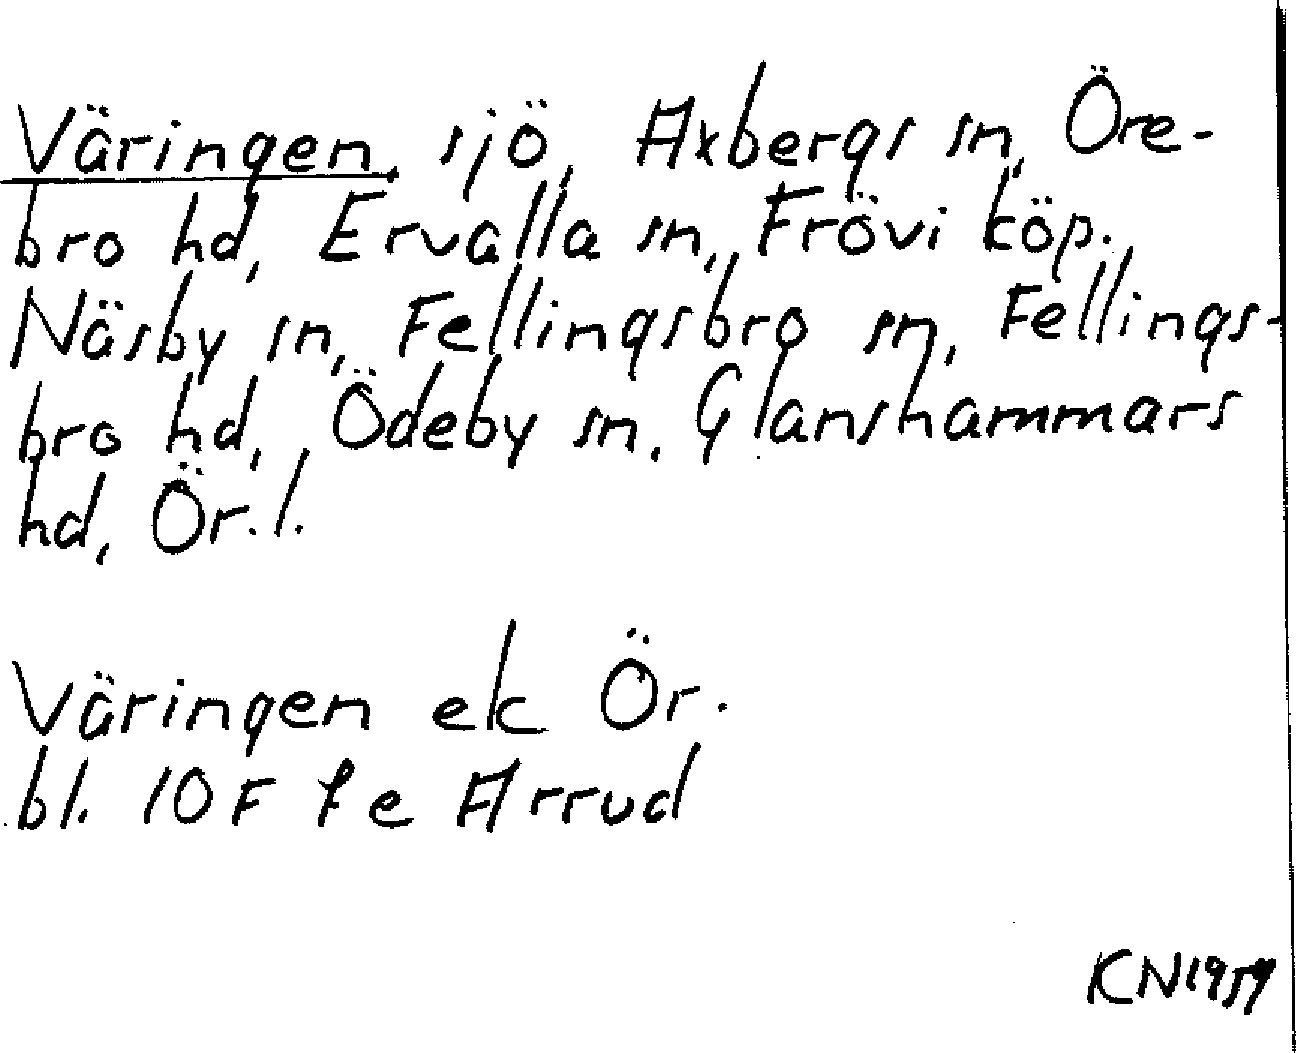 Väringen, sjö, Axbergs sn, Öre-
bro hd, Ervalla sn, Frövi köp.,
Näsby sn, Fellingsbro sn, Fellings-
bro hd, Ödeby sn, Glanshammars
hd, Ör. l.
Väringen ek Ör.
bl. 10F fe Arrud
KN1959